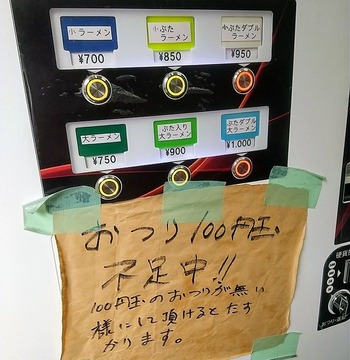 小 ラーメン
小 ぶた ラーメン
小 ぶたダブル ラーメン
¥700
¥850
¥950
大ラーメン
ぶた入り 大ラーメン
ぶたダブル 大ラーメン
¥750
¥900
¥1,000
おつり100円玉
不足中!!
100円玉のおつりが無い
様にして頂けるとたす
かります。